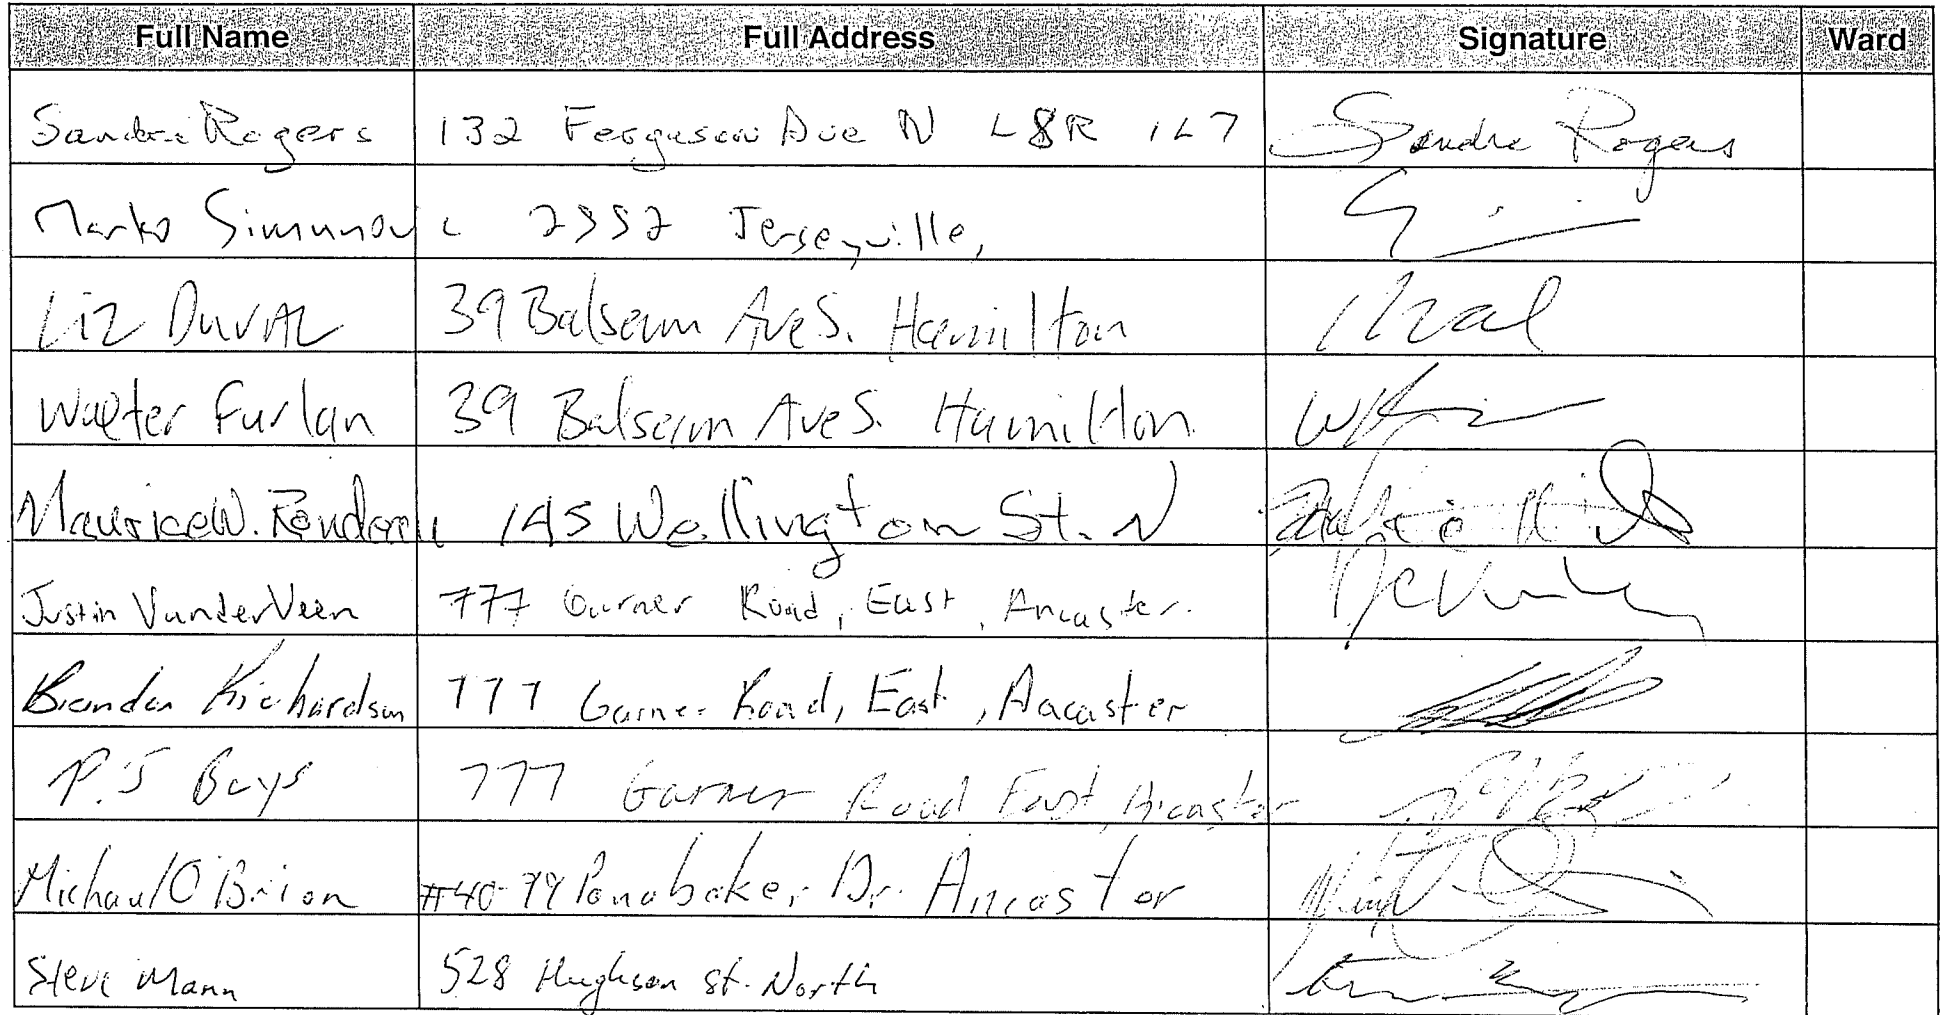 Full Name Full Address Signature Ward
Sandra Rogers 132 Ferguson Ave N L8R 1L7 Sandra Rogers
Marko Simunovic 2552 Jerseyville,
Liz Duval 39 Balsam Ave S. Hamilton
Walter Furlan 39 Balsam Ave S. Hamilton
Maurice W. 145 Wellington St. N
Justin VanderVeen 777 Garner Road, East, Ancaster.
Brandon Richardson 777 Garner Road, East, Ancaster
P.J Buys 777 Garner Road East, Ancaster
Michael O'Brion #40-79 Panabaker Dr. Ancaster
Steve Mann 528 Hughson St. North